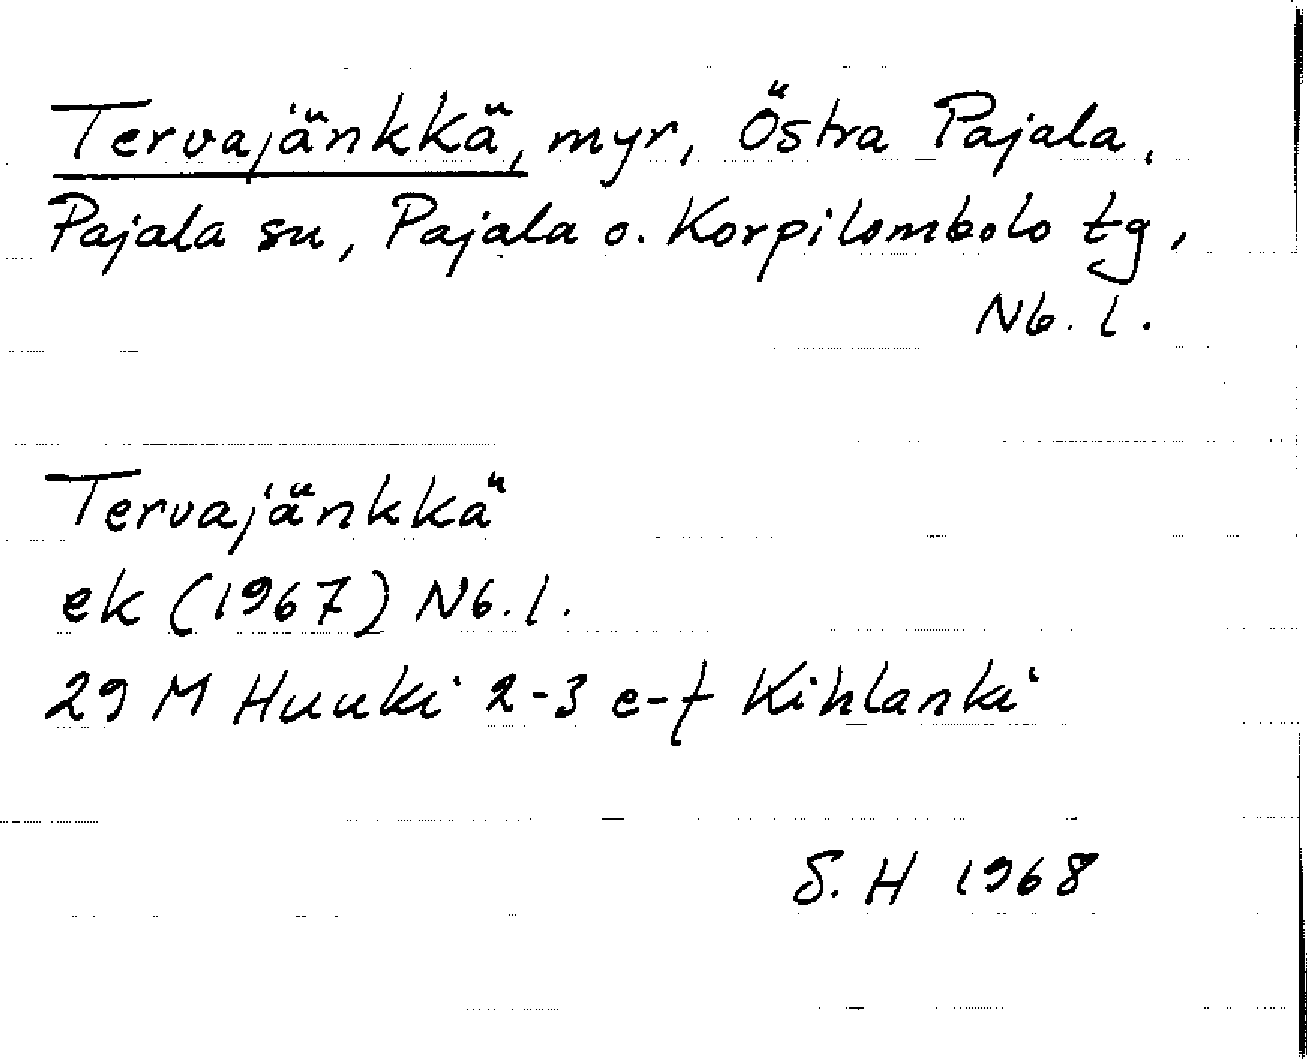 Tervajänkkä, myr, Östra Pajala,
Pajala su, Pajala o. Korpilombolo tg,
Nb. l.
Tervajänkkä
ek (1967) Nb. l.
29 M Huuki 2-3 e-f Kihlanki
S. H 1968